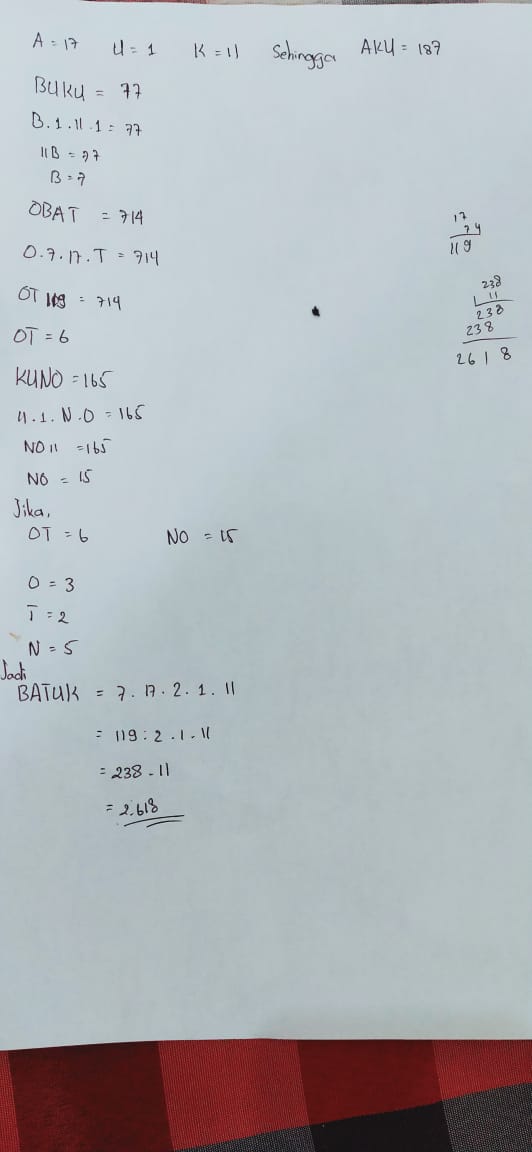 A = 17 U = 1 K = 11 Sehingga AKU = 187
BUKU = 77
B.1.11.1 = 77
11B = 77
B = 7
OBAT = 714
O.7.17.T = 714
OT 119 = 714
OT = 6
KUNO = 165
11.1.N.O = 165
NO11 = 165
NO = 15
Jika,
OT = 6 NO = 15
O = 3
T = 2
N = 5
Jadi
BATUK = 7.17.2.1.11
= 119:2.1.11
= 238.11
= 2.618
17
7
119
238
11
238
238
2618